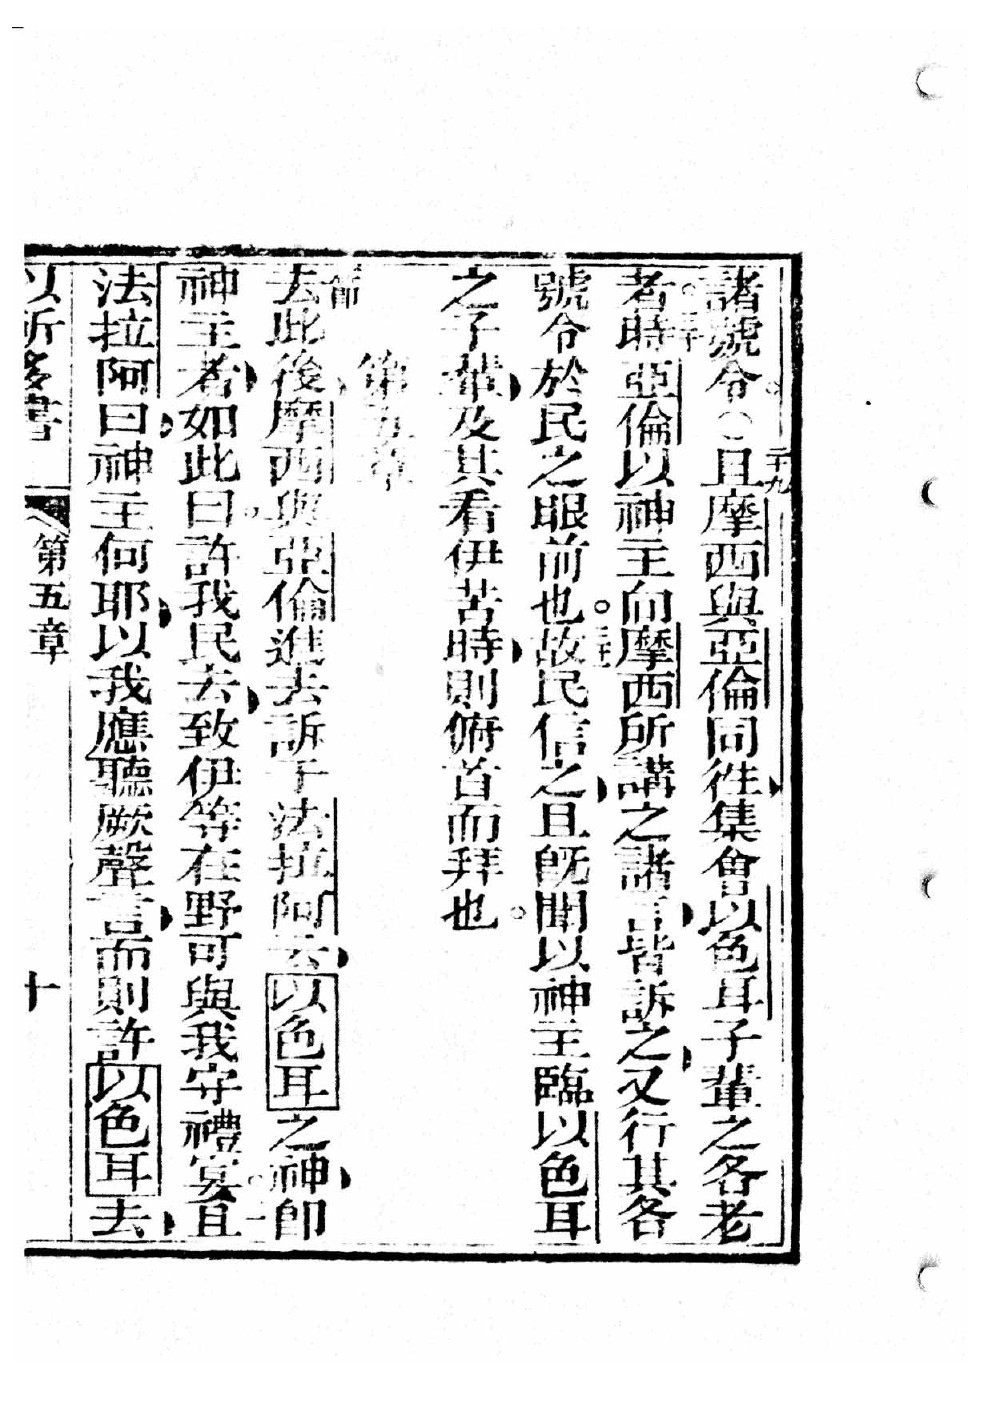 諸號令。二十九且摩西與亞倫同往集會以色耳子輩之各老
者。三十時亞倫以神主向摩西所講之諸言皆訴之又行其各
號令於民之眼前也。三十一故民信之且既聞以神主臨以色耳
之子輩及其看伊苦時則俯首而拜也。
第五章
第一節去此後摩西與亞倫進去訴于法拉阿云以色耳之神即
神主者如此曰。許我民去致伊等在野可與我守禮宴。二且
法拉阿曰神主何耶以我應聽厥聲言而則許以色耳去
以所多書
第五章
十